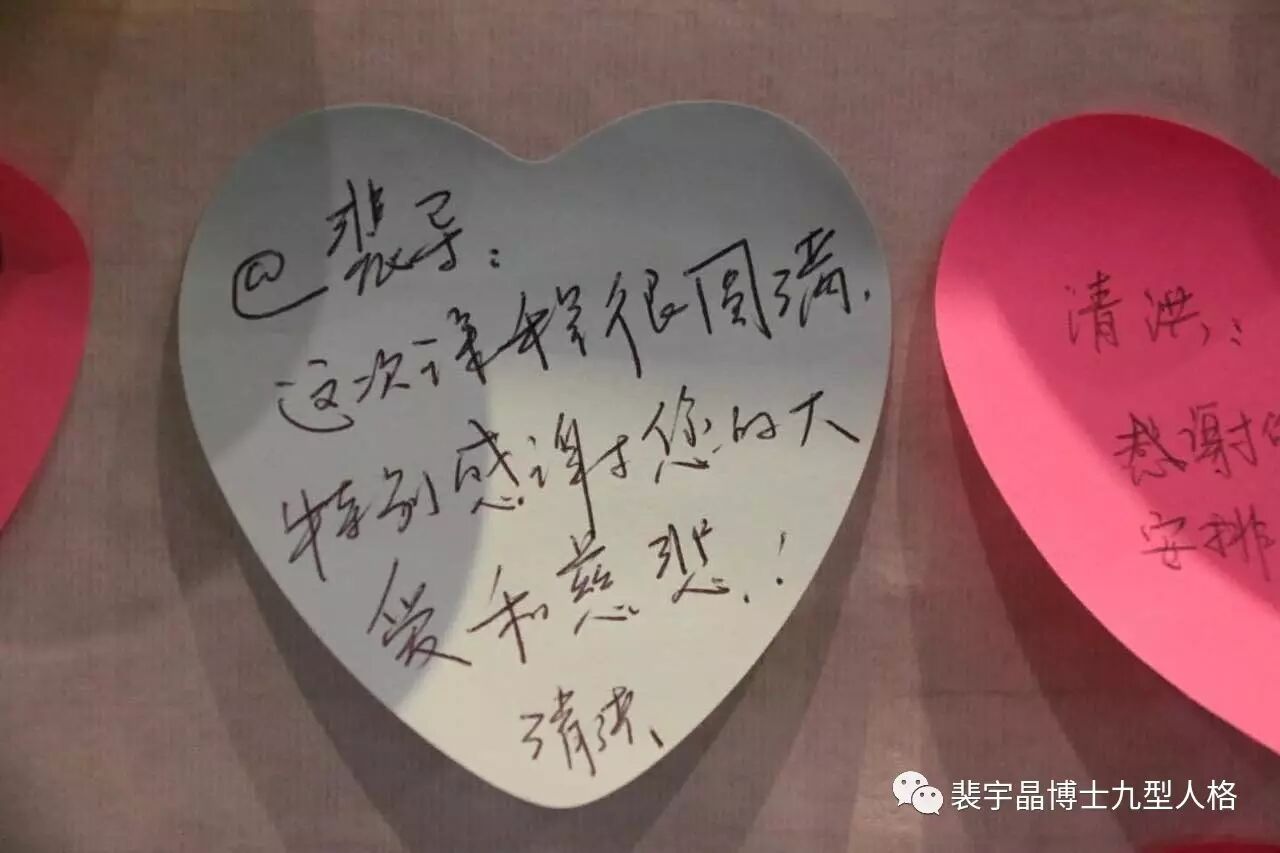 @裴导:
这次课程很圆满,
特别感谢您的大
爱和慈悲.!
清洪、
清洪,:
感谢
安排
裴宇晶博士九型人格